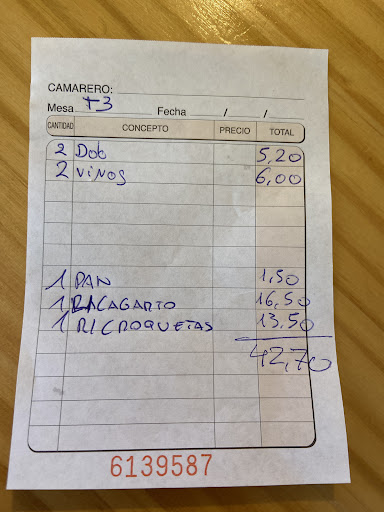 CAMARERO:
Mesa T3 Fecha / /
CANTIDAD CONCEPTO PRECIO TOTAL
2 Dob 5,20
2 vinos 6,00
1 PAN 1,50
1 LAGARTO 16,50
1 R/CROQUETAS 13,50
42,70
6139587